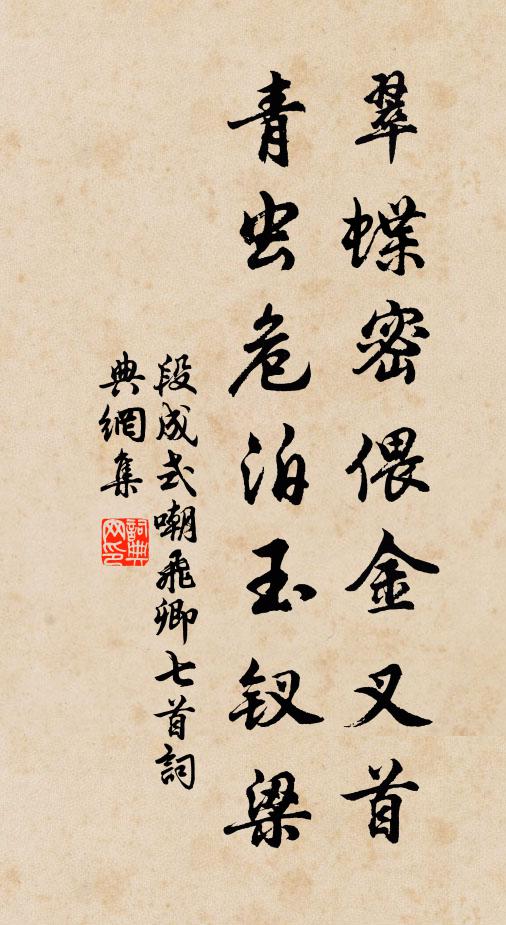 翠蝶密偎金叉首
青虫危泊玉钗梁
段成式嘲飛卿七首詞
典網集
詞典網印